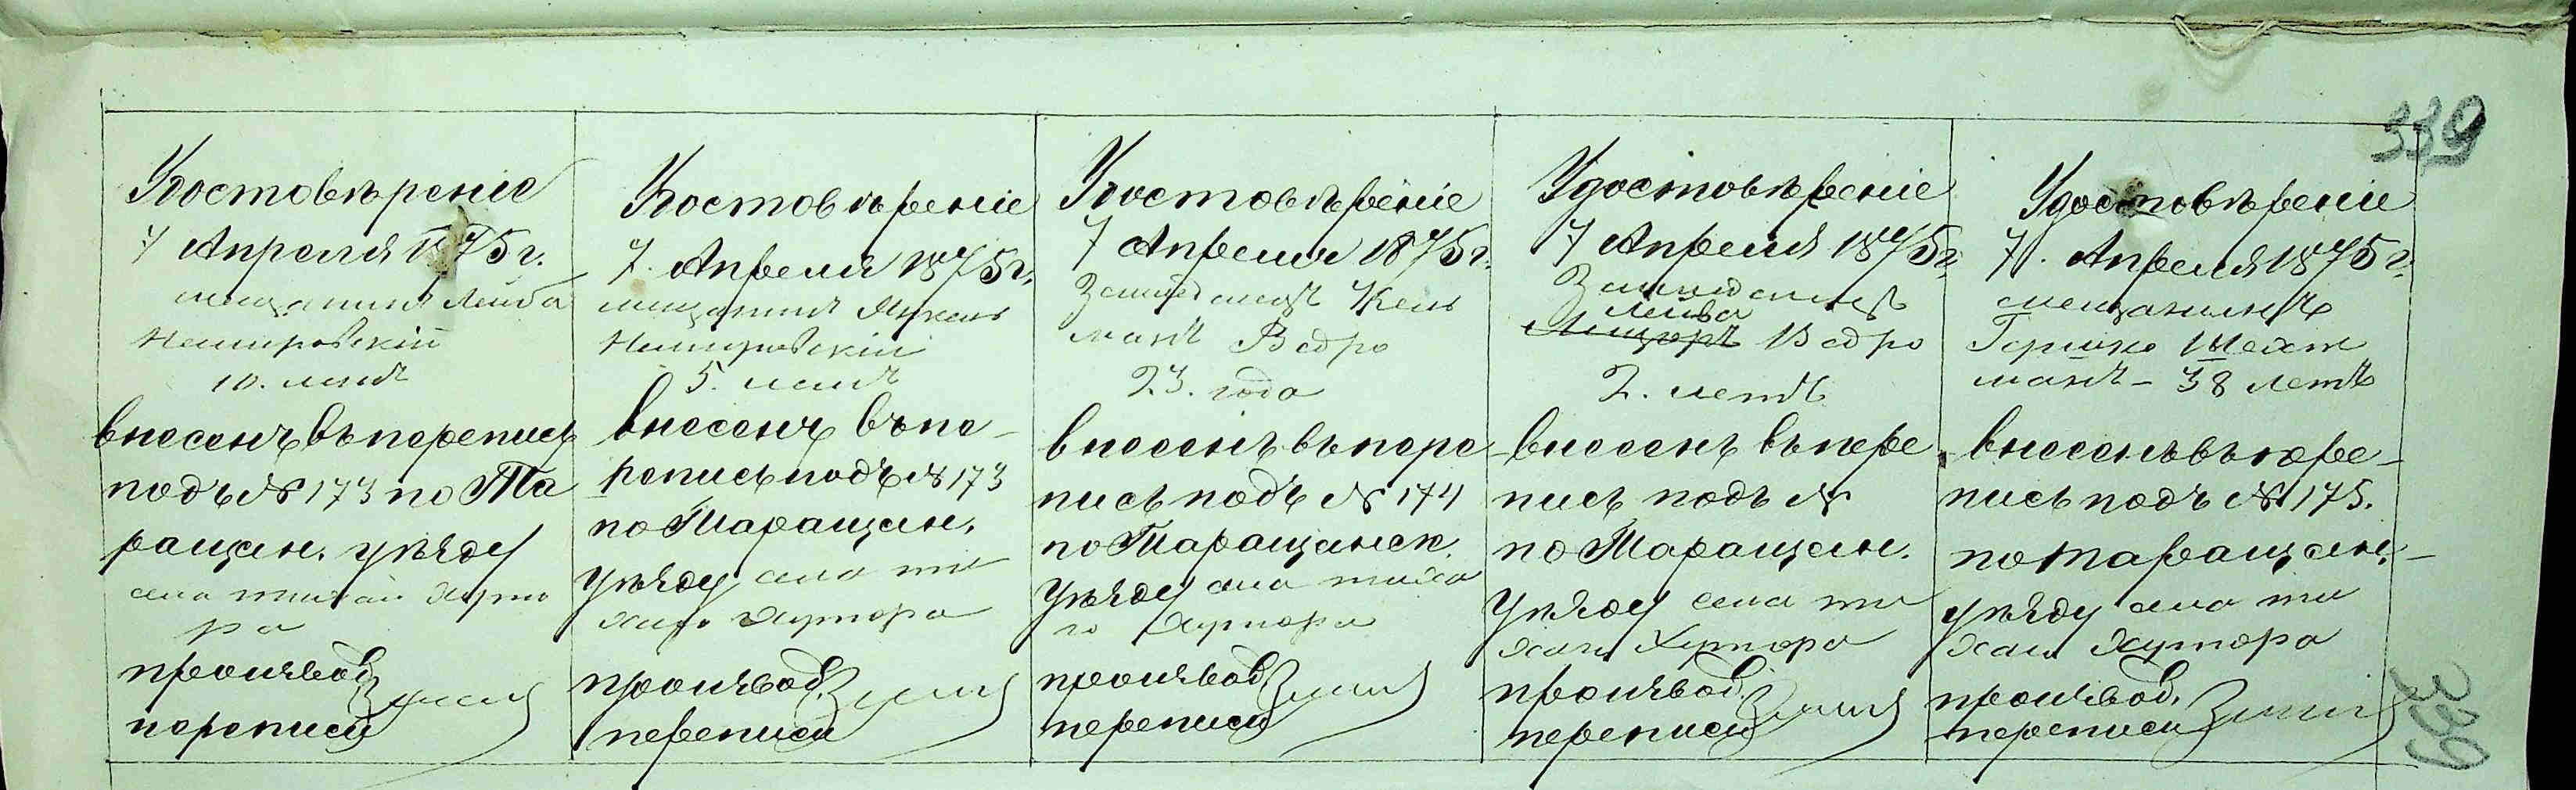 339
Удостовѣреніе
7 Апреля 1875 г.
мещанинъ Лейба
Немировскій
10. летъ
внесенъ въ перепись
подъ № 173 по Та
ращан. уѣзду
села тихаи Хуто
ра
производ.
переписи
Удостовѣреніе
7. Апреля 1875 г.
мещанинъ
Немировскій
5. летъ
внесенъ въ пе-
репись подъ № 173
по Таращан.
уѣзду села ти
хаго Хутора
производ.
переписи
Удостовѣреніе
7 Апреля 1875 г.
Земледелецъ Кель
манъ Ведро
23. года
внесенъ въ пере
пись подъ № 174
по Таращанск.
уѣзду села тиха
го Хутора
производ.
переписи
Удостовѣреніе
7 Апреля 1875 г.
Земледелецъ
Лейба
Ведро
2. летъ
внесенъ въ пере
пись подъ №
по Таращан.
уѣзду села ти
хаго Хутора
производ.
переписи
Удостовѣреніе
7. Апреля 1875 г.
мещанинъ
Гершко Шейхт
манъ - 38 летъ
внесенъ въ пере-
пись подъ № 175.
по таращан.-
уѣзду села ти
хаго Хутора
производ.
переписи
339